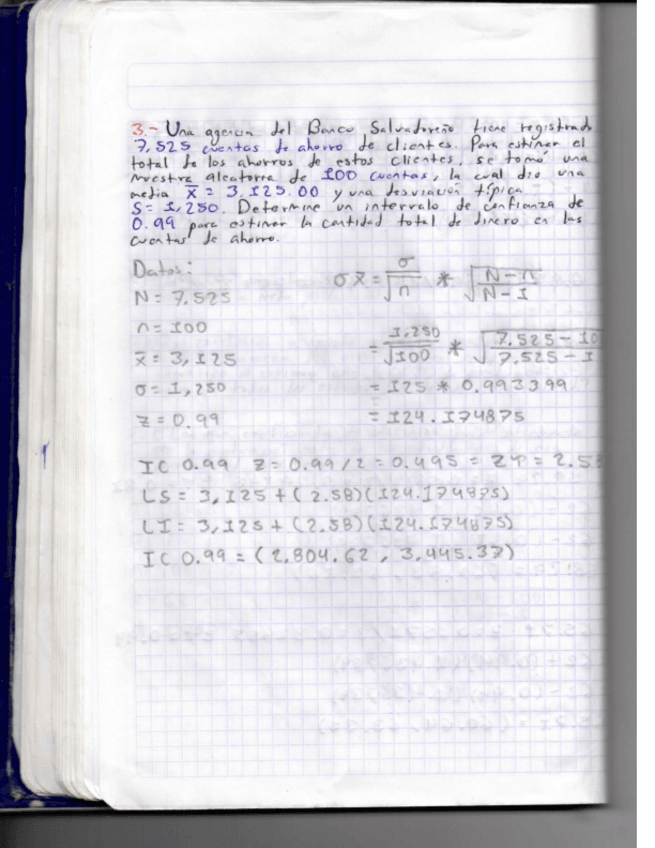 3.- Una agencia del Banco Salvadoreño tiene registrado
7,525 cuentas de ahorro de clientes. Para estimar el
total de los ahorros de estos clientes, se tomó una
muestra aleatoria de 100 cuentas, la cual dio una
media x̄ = 3,125.00 y una desviación típica
S= 1,250. Determine un intervalo de confianza de
0.99 para estimar la cantidad total de dinero en las
cuentas de ahorro.
Datos: σx̄ = σ/√n * √N-n/√N-1
N = 7,525
n = 100 = 1,250/√100 * √7,525-10/7,525-1
x̄ = 3,125
σ = 1,250 = 125 * 0.993399
z = 0.99 = 124.174875
IC 0.99 z = 0.99/2 = 0.495 = ZT = 2.58
LS = 3,125 + (2.58)(124.174875)
LI = 3,125 + (2.58)(124.174875)
IC 0.99 = (2,804.62 , 3,445.37)